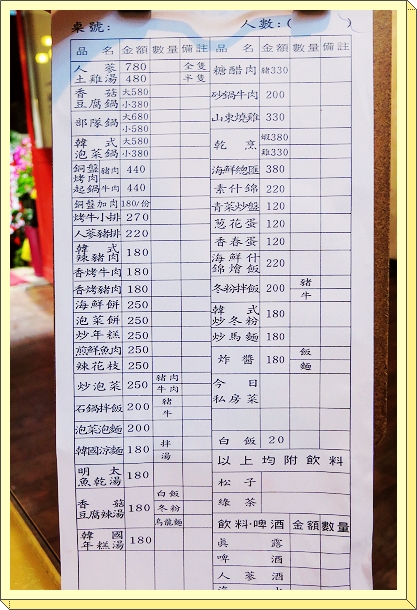 桌號: 人數:( )
品名 金額 數量 備註
人蔘土雞湯 780 全隻
480 半隻
香菇豆腐鍋 大580
小380
部隊鍋 大680
小580
韓式泡菜鍋 大580
小380
銅盤烤肉 豬肉 440
起鍋 牛肉 440
銅盤加肉 180/份
烤牛小排 270
人蔘豬排 220
韓式辣豬肉 180
香烤牛肉 180
香烤豬肉 180
海鮮餅 250
泡菜餅 250
炒年糕 250
煎鮮魚肉 250
辣花枝 250
炒泡菜 200 豬肉
牛肉
石鍋拌飯 200 豬
牛
泡菜泡麵 200
韓國涼麵 180 拌
湯
明太魚乾湯 180
香菇豆腐辣湯 180 白飯
冬粉
烏龍麵
韓國年糕湯 180
品名 金額 數量 備註
糖醋肉 豬330
砂鍋牛肉 200
山東燒雞 330
乾烹 蝦380
雞330
海鮮總匯 380
素什錦 220
青菜炒盤 120
蔥花蛋 120
香春蛋 120
海鮮什錦燴飯 220
冬粉拌飯 200 豬
牛
韓式炒冬粉 180
炒馬麵 180
炸醬 180 飯
麵
今日私房菜
白飯 20
以上均附飲料
松子
綠茶
飲料·啤酒 金額 數量
真露
啤酒
人蔘酒